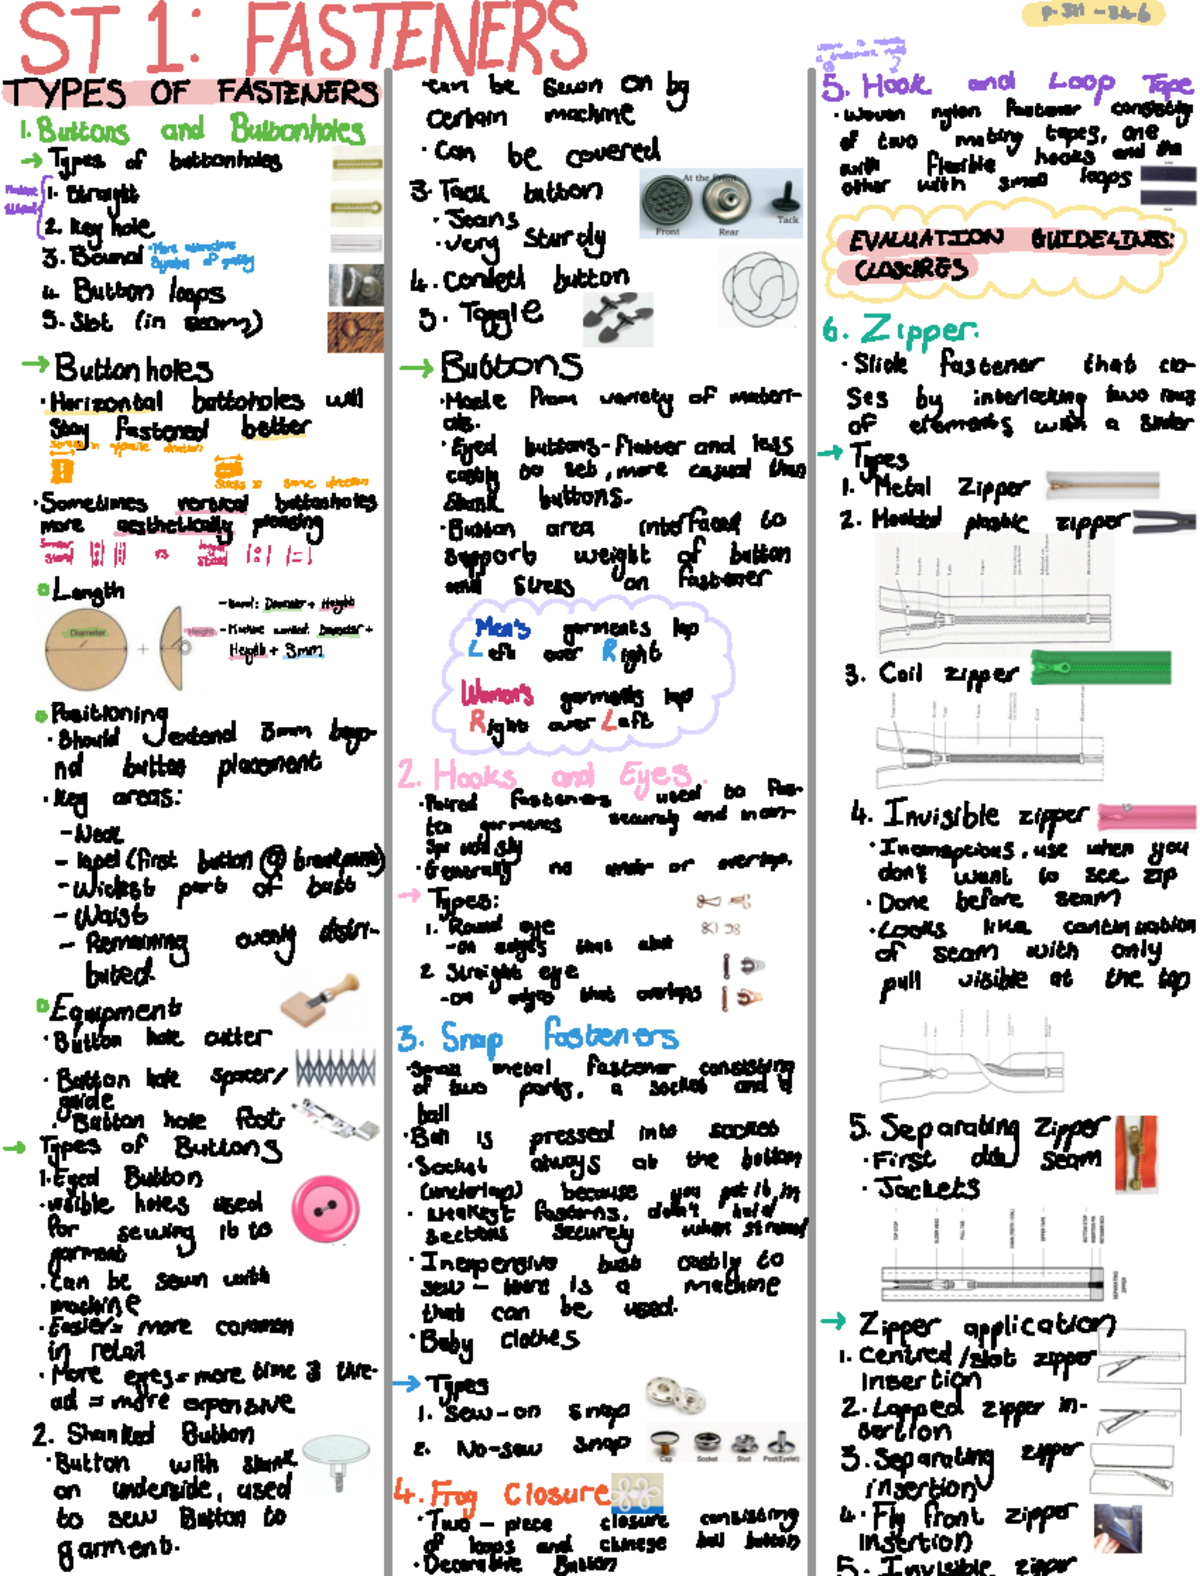 ST 1: FASTENERS
p. 311 - 346
TYPES OF FASTENERS
1. Buttons and Buttonholes
→ Types of buttonholes
1. Straight
2. Key hole
3. Bound
4. Button loops
5. Slot (in seam)
→ Button holes
· Horizontal buttoholes will
stay fastened better
Stress in opposite direction
Stress is same direction
· Sometimes vertical buttonholes
more aesthetically pleasing
vs
Length
Diameter
+
Height
- Hand: Diameter + Height
- Machine worked: Diameter +
Height + 3mm
Positioning
· Should extend 3mm beyo-
nd button placement
· Key areas:
- Neck
- lapel (first button @ breakpoint)
- Widest part of bust
- Waist
- Remaining evenly distri-
buted.
Equipment
· Button hole cutter
· Button hole spacer/
guide
· Button hole foot
→ Types of Buttons
1. Eyed Button
· visible holes used
for sewing it to
garment
· Can be sewn with
machine
· Easier = more common
in retail
· More eyes = more time & thre-
ad = more expensive
2. Shanked Button
· Button with shank
on underside, used
to sew Button to
garment.
· can be sewn on by
certain machine
· Can be covered
3. Tack button
· Jeans
· Very sturdy
At the Front
Front
Rear
Tack
4. Corded button
5. Toggle
→ Buttons
· Made from variety of materi-
als.
· Eyed buttons - flatter and less
costly to set, more casual than
Shank buttons.
· Button area interfaced to
support weight of button
and stress on fastener
Men's garments lap
Left over Right
Women's garments lap
Right over Left
2. Hooks and Eyes.
· Paired fasteners used to fas-
ten garments securely and incon-
spicuously
· Generally no under or overlap.
→ Types:
1. Round eye
- on edges that abut
2. Straight eye
- on edges that overlaps
3. Snap fasteners
· Small metal fastener consisting
of two parts, a socket and a
ball
· Ball is pressed into socket
· Socket always at the bottom
(underlap) because you put it in
· weakest fasteners, don't hold
sections securely when strained
· Inexpensive but costly to
sew - there is a machine
that can be used.
· Baby clothes
→ Types
1. Sew-on snap
2. No-sew snap
Cap
Socket
Stud
Post(Eyelet)
4. Frog Closure
· Two - piece closure consisting
of loops and chinese ball button
· Decorative Button
5. Hook and Loop Tape
· Woven nylon fastener consisting
of two mating tapes, one
with flexible hooks and the
other with small loops
EVALUATION GUIDELINES:
CLOSURES
6. Zipper.
· Slide fastener that clo-
ses by interlocking two rows
of elements with a slider
→ Types
1. Metal Zipper
2. Moulded plastic zipper
3. Coil zipper
4. Invisible zipper
· Inconspicious, use when you
don't want to see zip
· Done before seam
· Looks like continuation
of seam with only
pull visible at the top
5. Separating Zipper
· First do seam
· Jackets
TOP STOP
PULL TAB
ZIPPER TAPE
SEPARATING
ZIPPER
→ Zipper application
1. Centred/slot zipper
Insertion
2. Lapped zipper in-
sertion
3. Separating zipper
insertion
4. Fly front zipper
Insertion
5. Invisible zipper